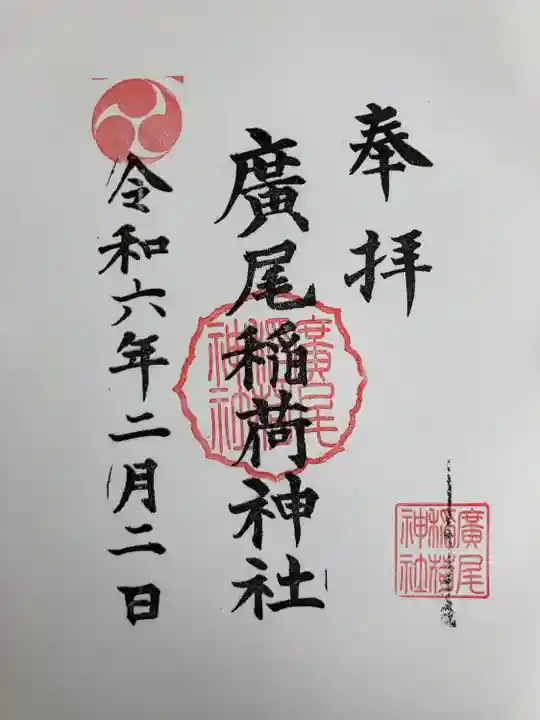 奉拝
廣尾稲荷神社
令和六年二月二日
廣尾
稲荷
神社
廣尾
稲荷
神社